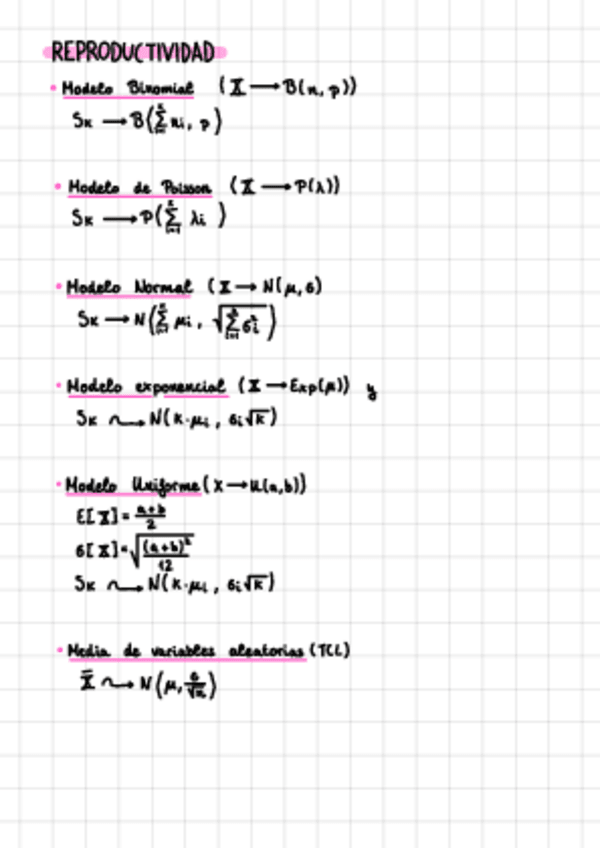 REPRODUCTIVIDAD
• Modelo Binomial (X → B(n, p))
Sκ → B(∑ᵢ₌₁ᵏ nᵢ, p)
• Modelo de Poisson (X → P(λ))
Sκ → P(∑ᵢ₌₁ᵏ λᵢ)
• Modelo Normal (X → N(μ, σ)
Sκ → N(∑ᵢ₌₁ᵏ μᵢ, √(∑ᵢ₌₁ᵏ σᵢ²))
• Modelo exponencial (X → Exp(μ)) y
Sκ ⤳ N(κ·μᵢ, σᵢ√κ)
• Modelo Uniforme (X → U(a,b))
E[X] = (a+b)/2
σ[X] = √((a+b)²/12)
Sκ ⤳ N(κ·μᵢ, σᵢ√κ)
• Media de variables aleatorias (TCL)
X̄ ⤳ N(μ, σ/√n)